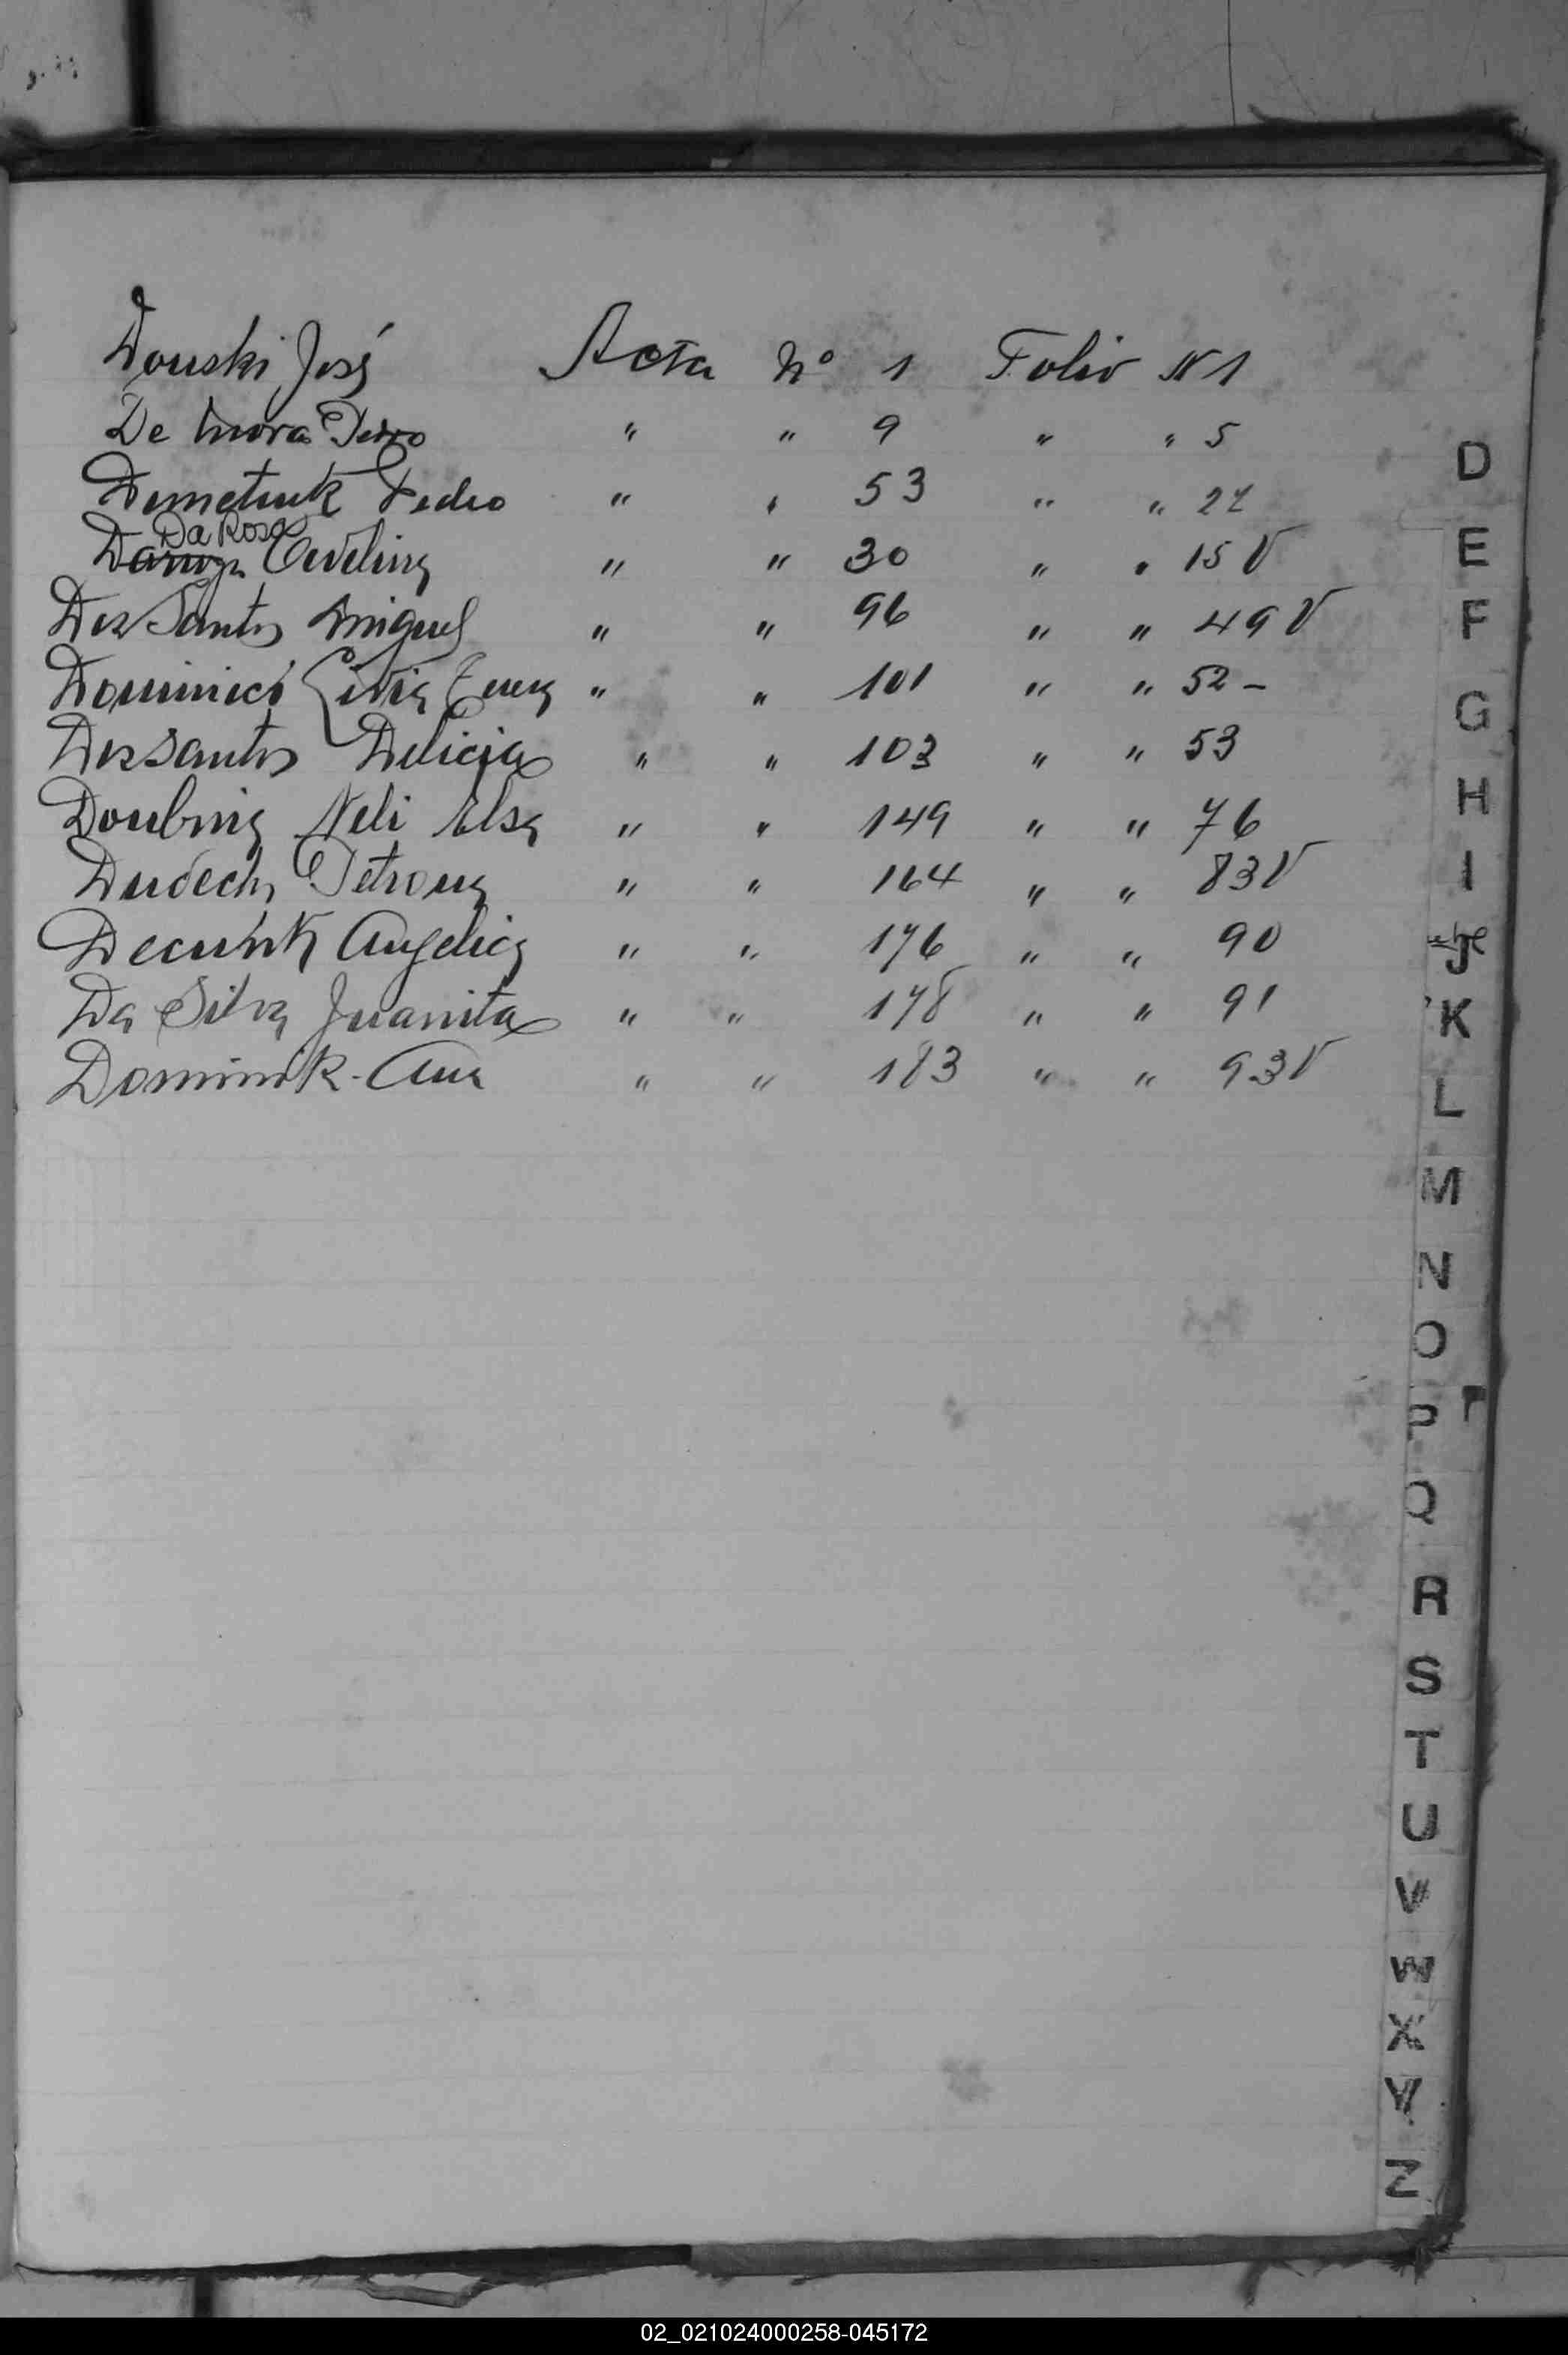 Douski José Acta Nº 1 Folio N 1
De Mora Pedro " " 9 " " 5
Demetruk Pedro " " 53 " " 27
Da Rosa
Evelina " " 30 " " 15 V
Dos Santos Miguel " " 96 " " 49 V
Dominici Livia Elena " " 101 " " 52 -
Dos Santos Delicia " " 103 " " 53
Doubnia Neli Elsa " " 149 " " 76
Petrona " " 164 " " 83 V
Angelica " " 176 " " 90
Da Silva Juanita " " 178 " " 91
Dominik Ana " " 183 " " 93 V
D
E
F
G
H
I
J
K
L
M
N
O
P
Q
R
S
T
U
V
W
X
Y
Z
02_021024000258-045172